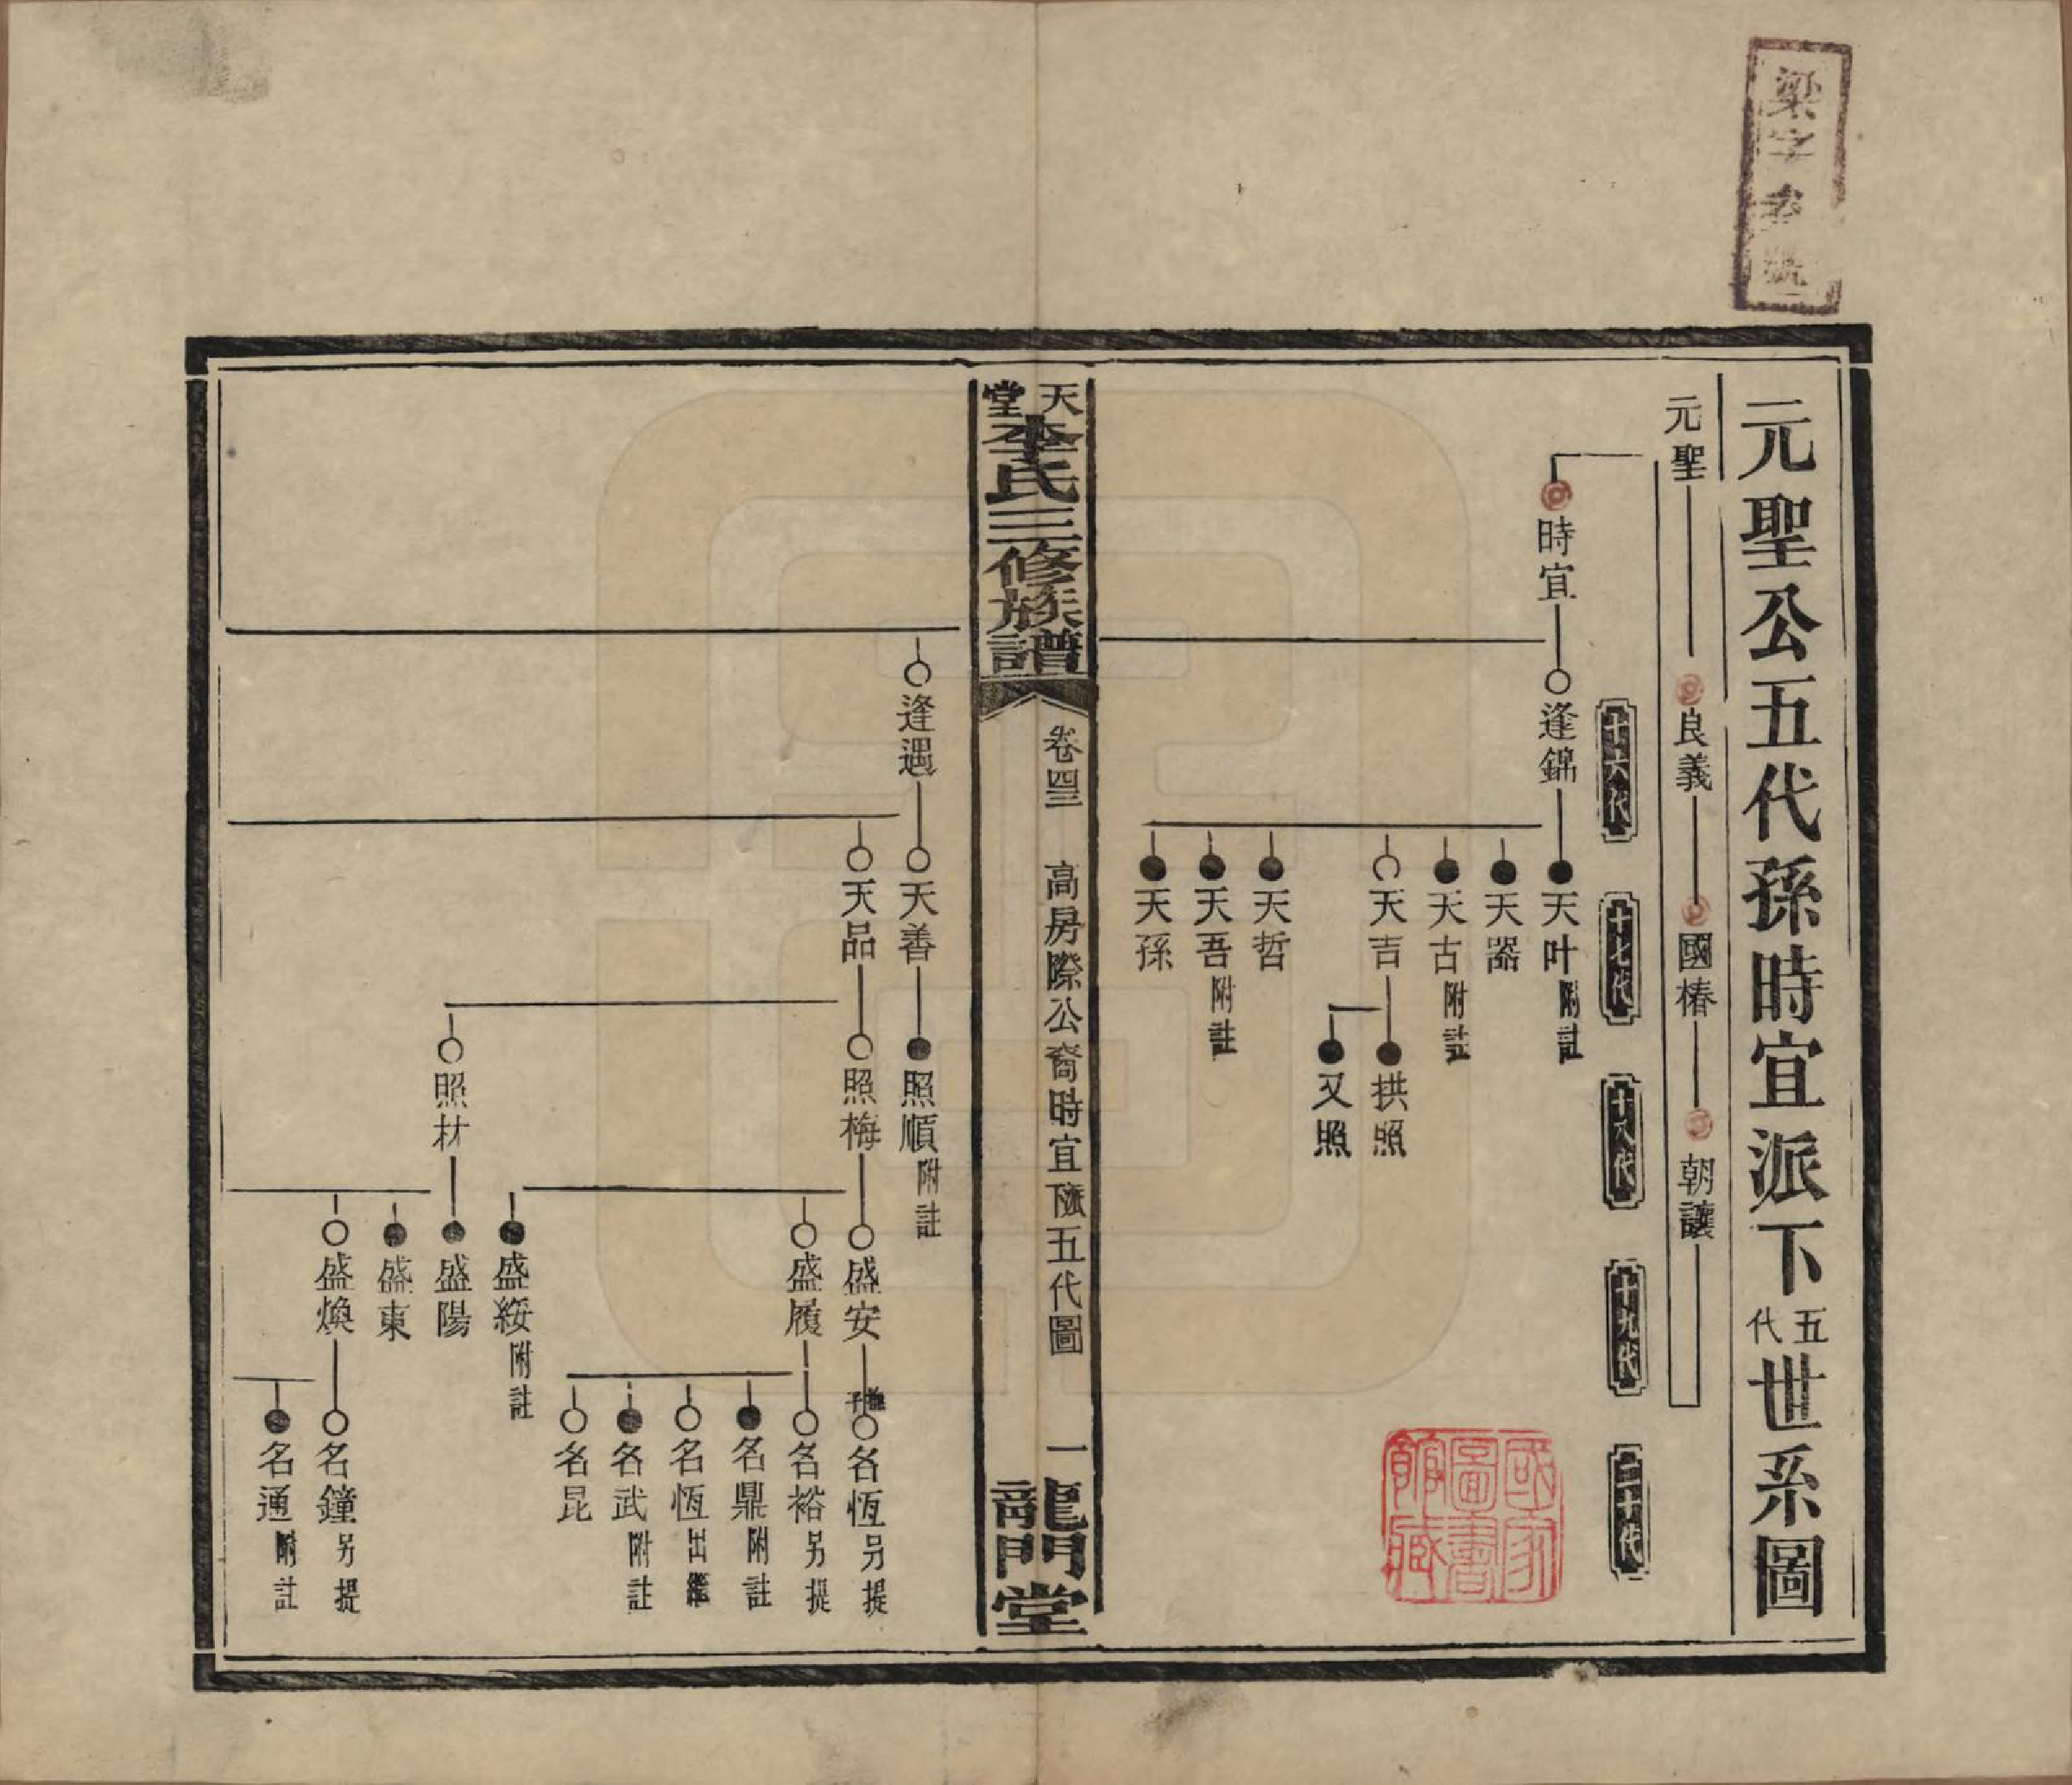 梁字 號
元聖公五代孫時宜派下五代世系圖
元聖 良義 國椿 朝讓
十六代 十七代 十八代 十九代 二十代
時宜 逢錦 天叶附註
天器
天古附註
天吉 拱照
又照
天哲
天吾附註
天孫
國家圖書館藏
天堂李氏三修族譜 卷四三 高房際公裔時宜派五代圖 一 龍門堂
逢遇 天善 照順附註
天品 照梅 盛安 名恆另提
盛履 名裕另提
名鼎附註
名恆出繼
名武附註
名昆
盛綏附註
照材 盛陽
盛東
盛煥 名鐘另提
名通附註